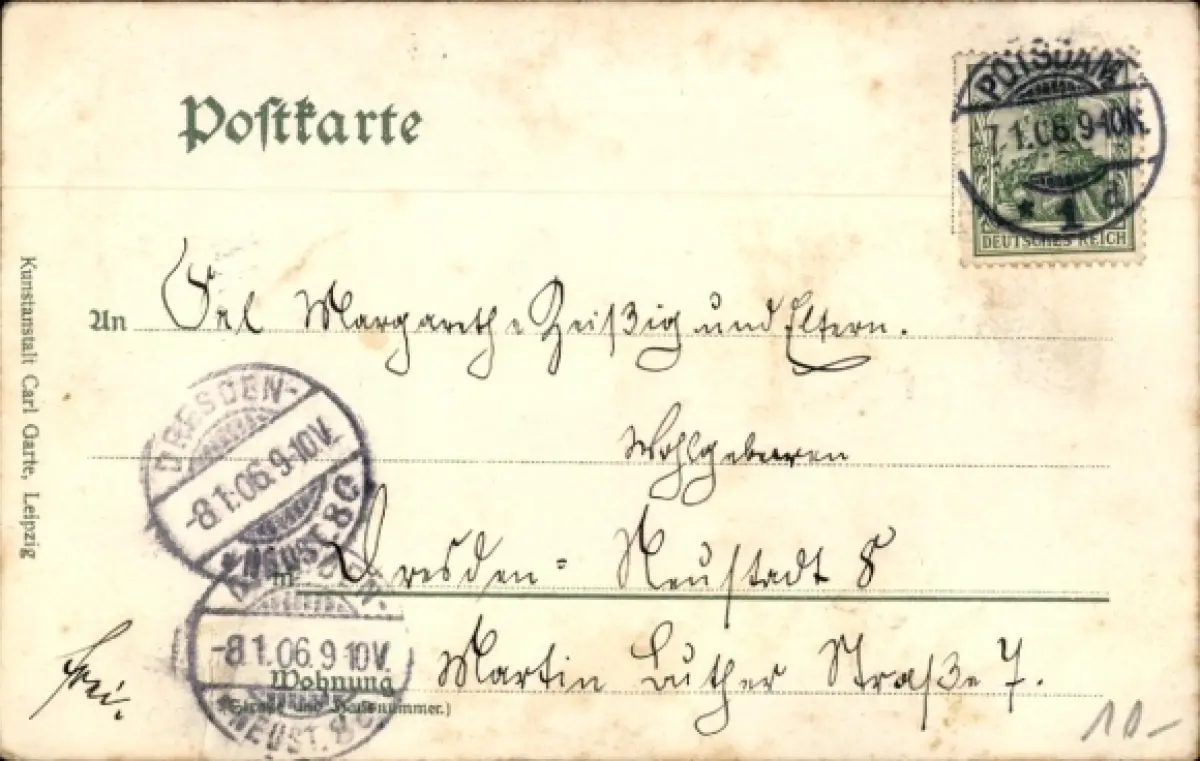 Postkarte
POTSDAM
7.1.06.9-10N.
* 1 d
DEUTSCHES REICH
An Frl Margarethe Zeißig und Eltern.
Wohlgeboren
in Dresden-Neustadt 8
Wohnung Martin Luther Straße 7.
(Straße und Hausnummer.)
Frei.
DRESDEN-
-8.1.06.9-10V.
* NEUST. 8 C
-8.1.06.9-10V.
NEUST. 8
Kunstanstalt Carl Garte, Leipzig
10-